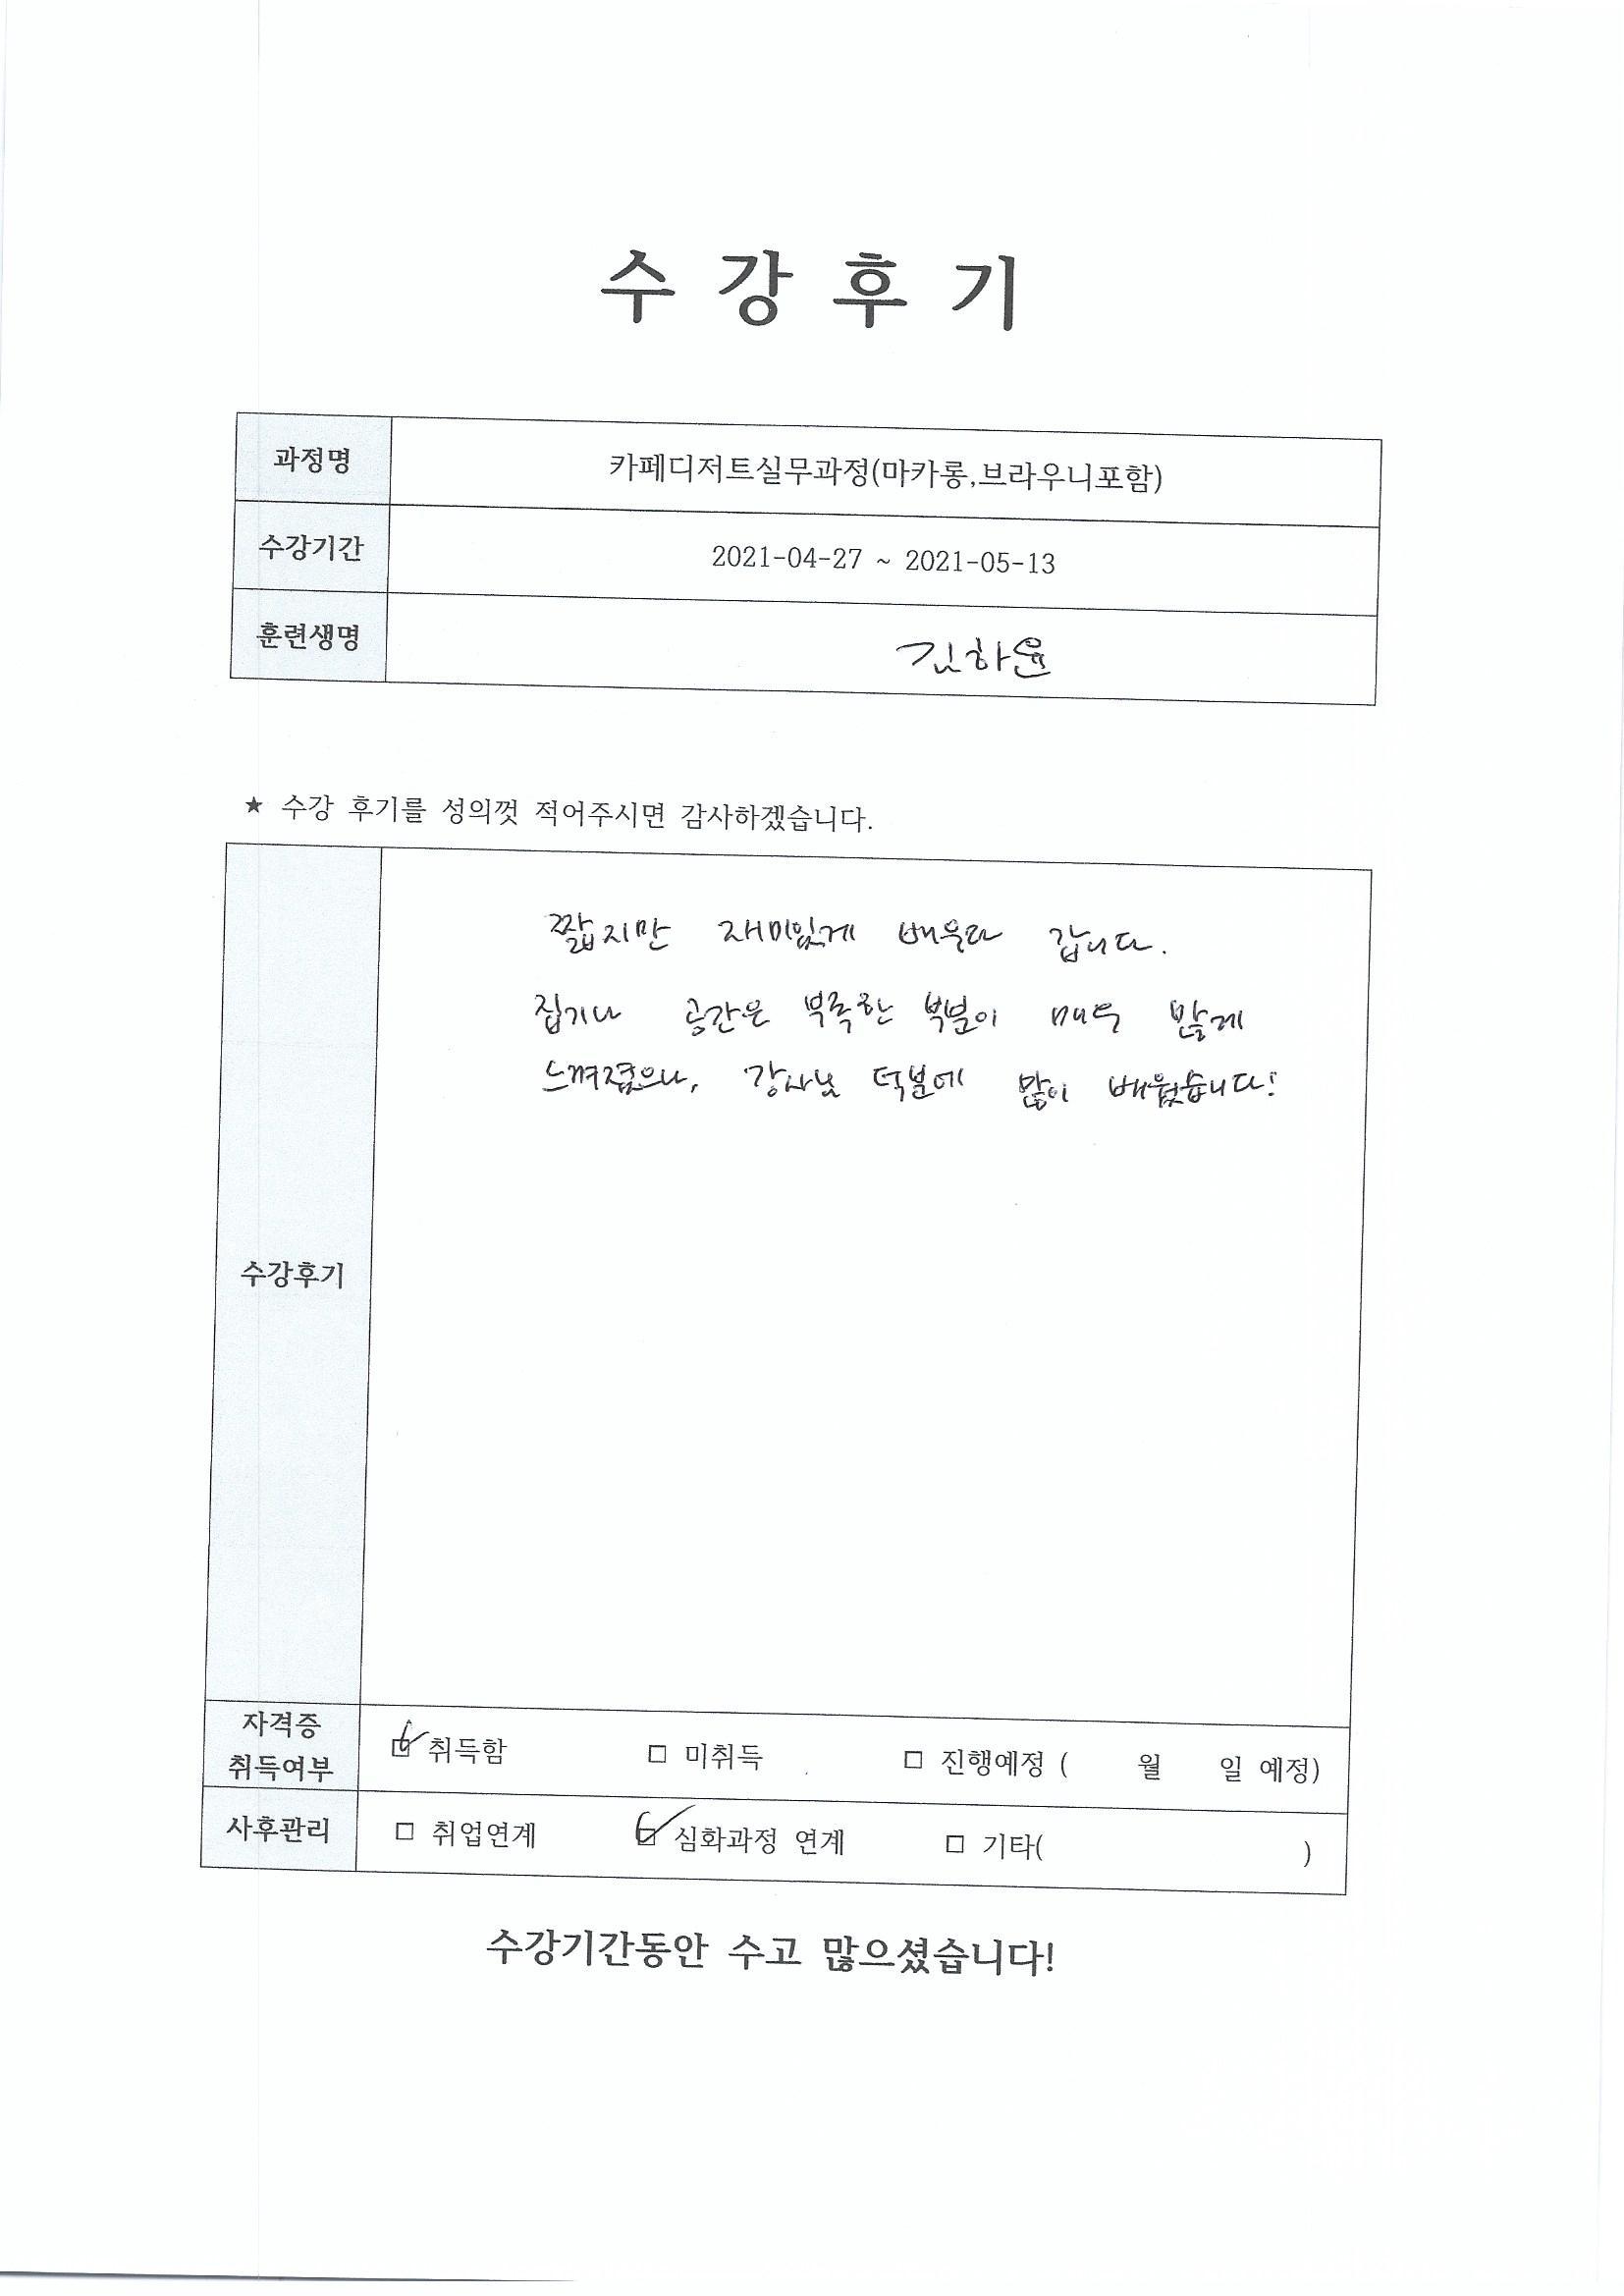 수 강 후 기
과정명 카페디저트실무과정(마카롱,브라우니포함)
수강기간 2021-04-27 ~ 2021-05-13
훈련생명 김하윤
★ 수강 후기를 성의껏 적어주시면 감사하겠습니다.
짧지만 재미있게 배우다 갑니다.
집기나 공간은 부족한 부분이 매우 많게
느껴졌으나, 강사님 덕분에 많이 배웠습니다!
수강후기
자격증
취득여부 □ 취득함 □ 미취득 □ 진행예정 ( 월 일 예정)
사후관리 □ 취업연계 □ 심화과정 연계 □ 기타( )
수강기간동안 수고 많으셨습니다!